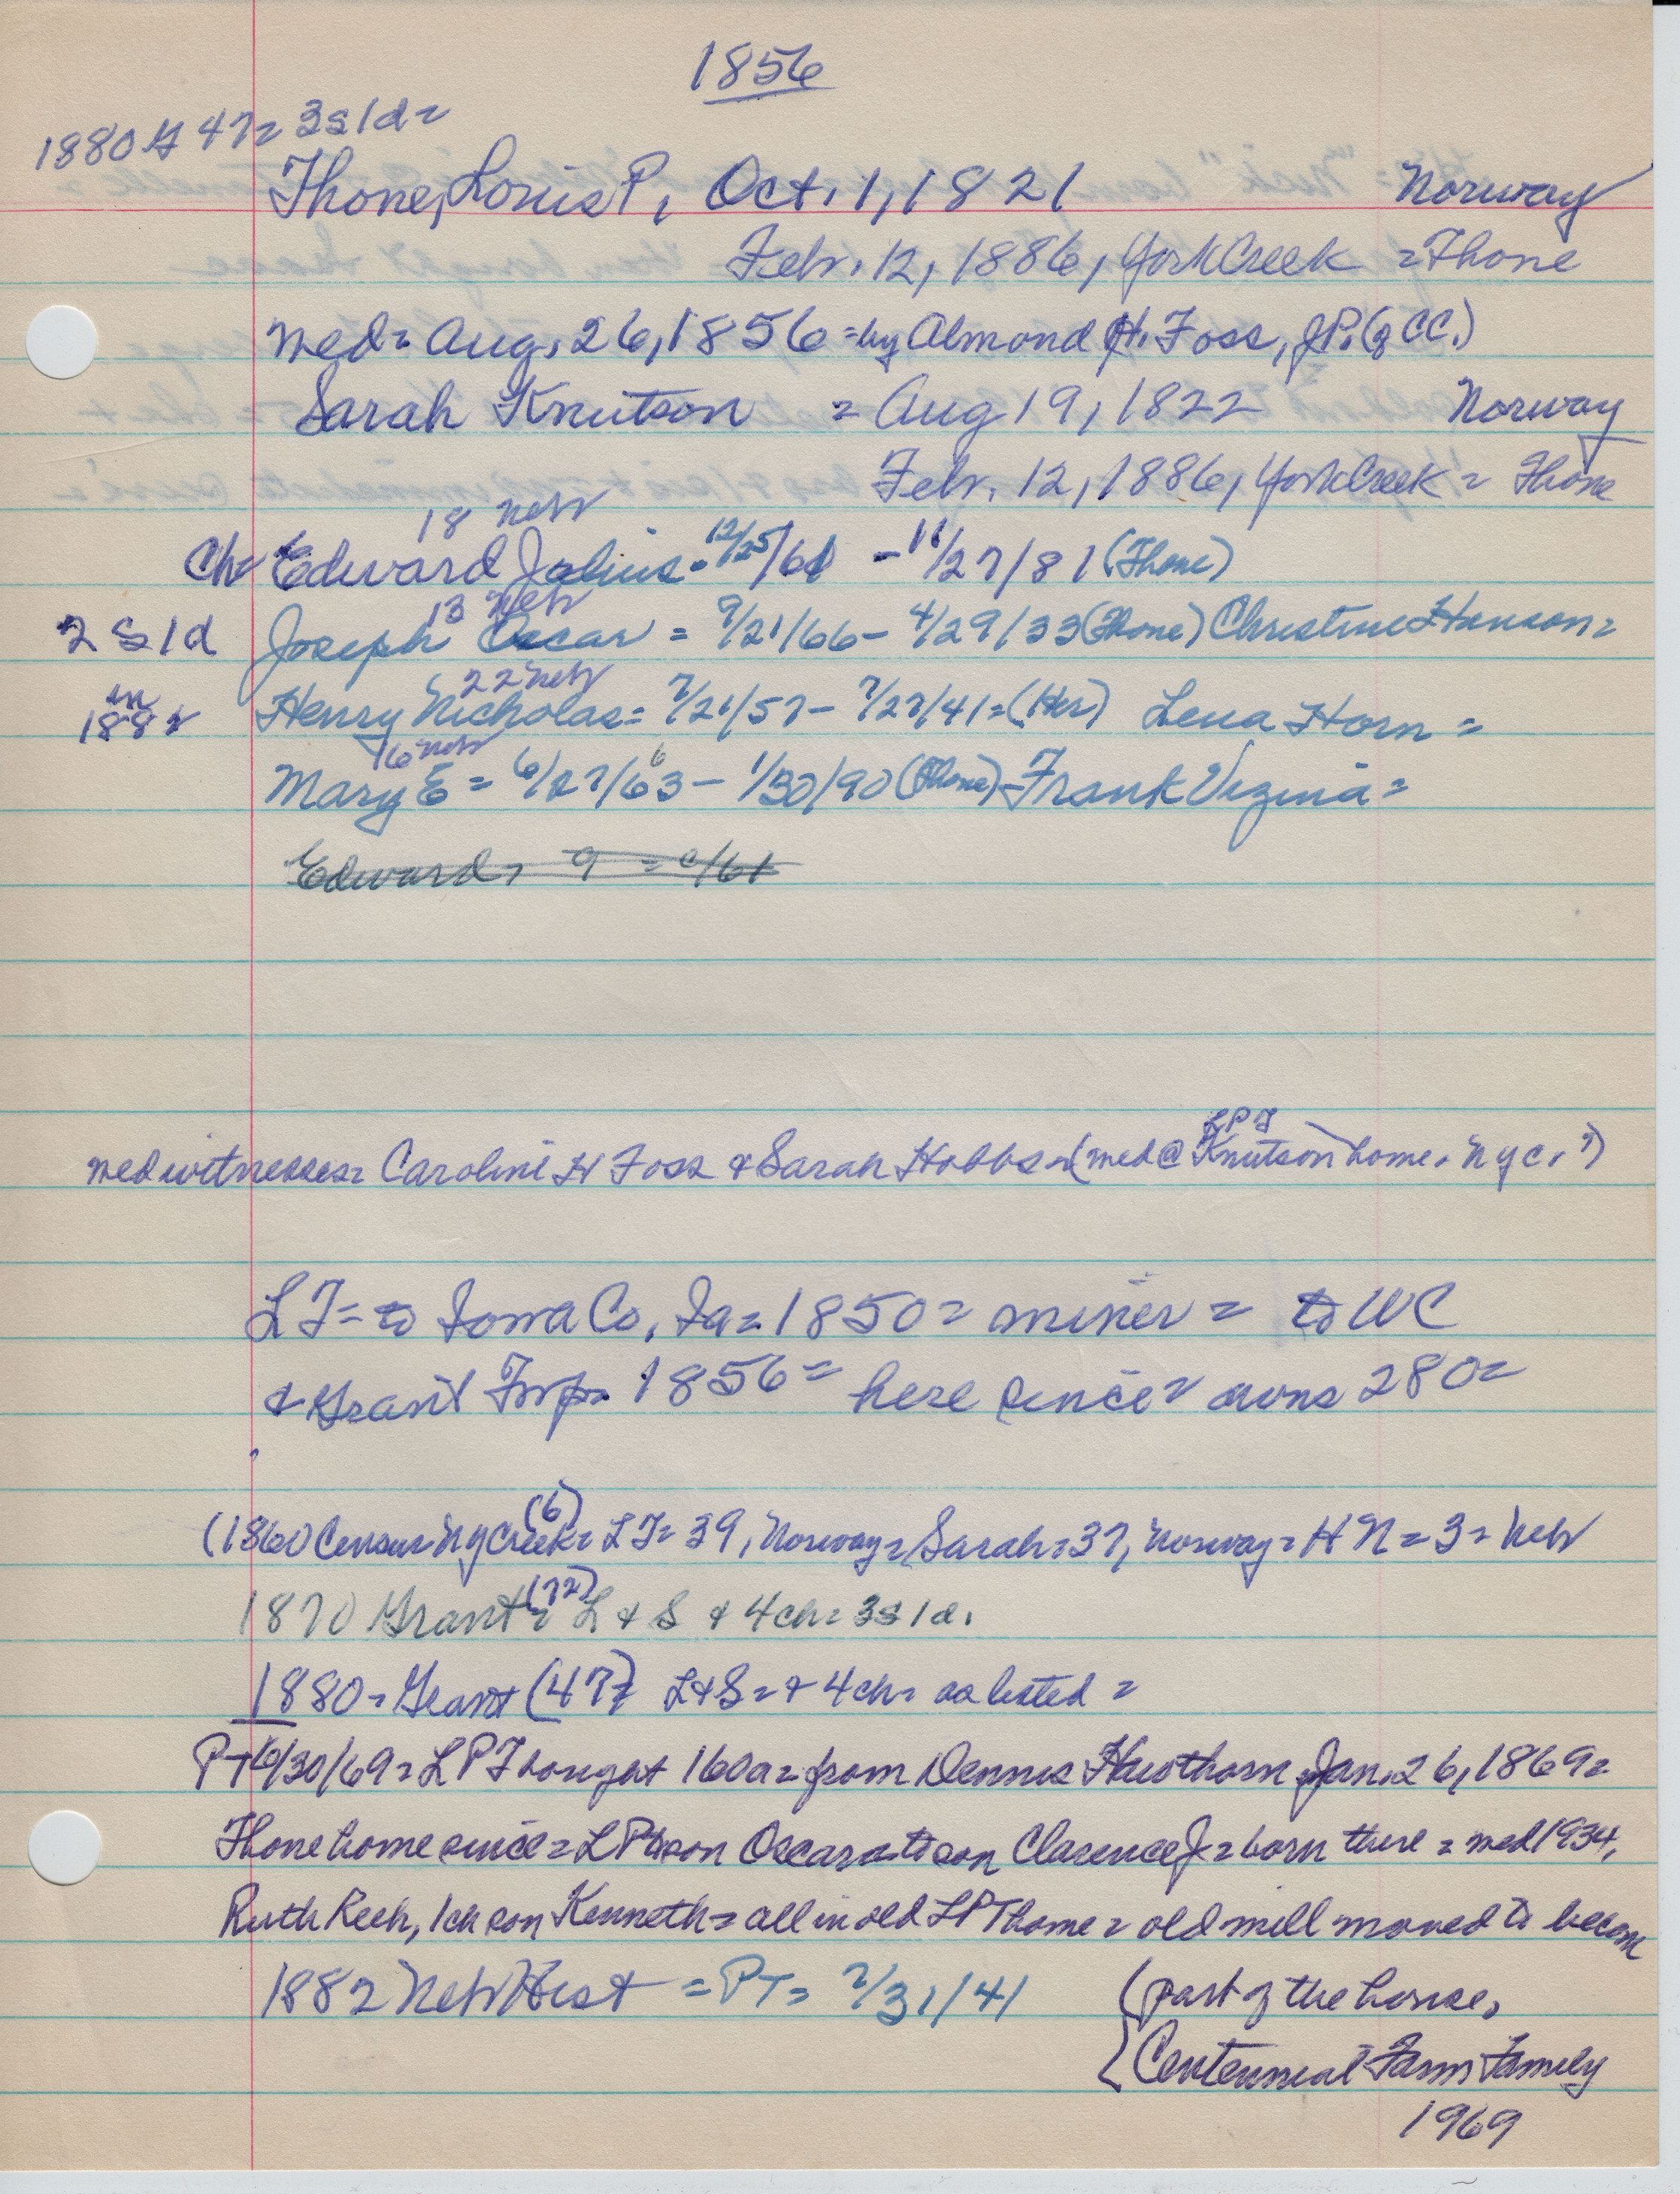 1856
1880 G 47= 3s 1d=
Thone, Louis P, Oct. 1, 1821 Norway
Febr. 12, 1886, York Creek = Thone
med= Aug. 26, 1856 = by Almond H. Foss, JP. (of CC.)
Sarah Knutson = Aug 19, 1822 Norway
Febr. 12, 1886, York Creek = Thone
18 Nebr
Ch= Edward Julius - 12/25/61 - 11/27/81 (Thone)
13 Nebr
2 S 1d Joseph Oscar = 9/21/66 - 4/29/33 (Thone) Christine Hanson=
in 22 Nebr
1882 Henry Nicholas= 7/21/57 - 7/27/41 = (Her) Lena Horn =
16 Nebr
Mary E = 6/27/63 - 1/30/90 (Thone) - Frank Vezina =
Edward, 9 = c/61
LPT
med witnesses= Caroline H Foss & Sarah Hobbs = (med @ Knutson home, N y c, ?)
LT= to Iowa Co, Ia= 1850= miner = to WC
& Grant Twp= 1856= here since= owns 280=
(6)
(1860 Census= N y Creek= LT= 39, Norway= Sarah= 37, Norway= HN = 3 = Nebr
(72)
1870 Grant= L & S & 4 ch= 3s 1d.
1880 = Grant (47) L & S = & 4 ch= as listed =
PT 6/30/69= LPT bought 160a= from Dennis Hawthorn Jan. 26, 1869=
Thone home since = LP to son Oscar to son Clarence J= born there = med 1934,
Ruth Rech, 1 ch son Kenneth= all in old LPT home = old mill moved to become
1882 Nebr Hist = PT= 7/31/41 (part of the house,
Centennial Farm Family
1969